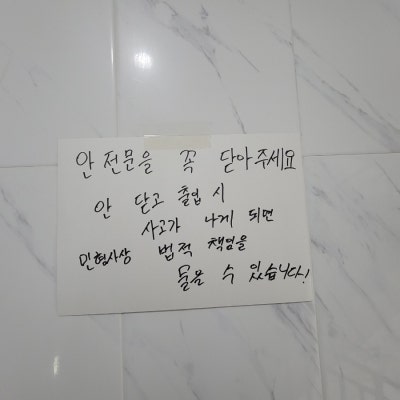 안전문을 꼭 닫아주세요
안 닫고 출입 시
사고가 나게 되면
민형사상 법적 책임을
물을 수 있습니다!